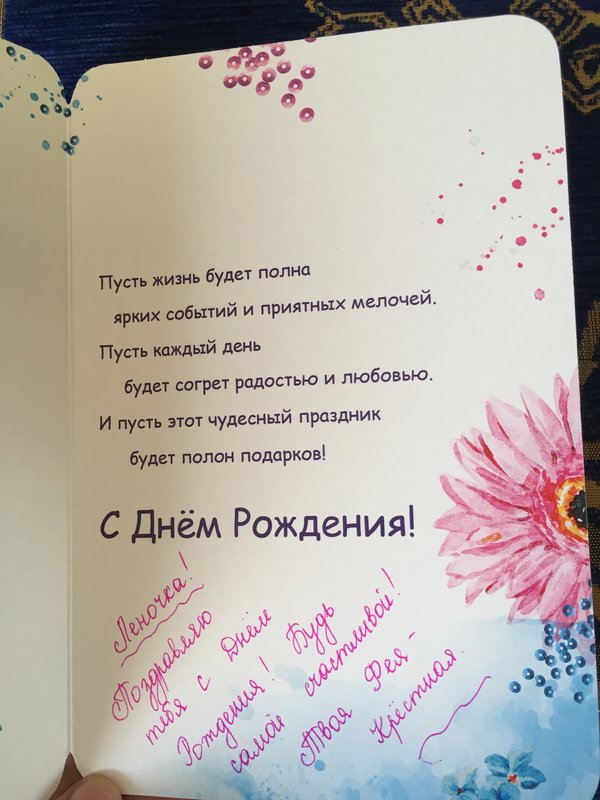 Пусть жизнь будет полна
ярких событий и приятных мелочей.
Пусть каждый день
будет согрет радостью и любовью.
И пусть этот чудесный праздник
будет полон подарков!
С Днём Рождения!
Леночка!
Поздравляю
тебя с Днём
Рождения! Будь
самой счастливой!
Твоя Фея-
Крёстная.